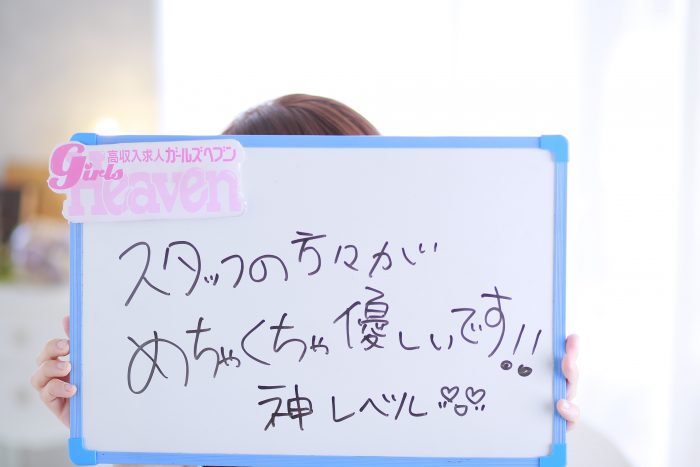 高収入求人ガールズヘブン
Girls Heaven
スタッフの方々が
めちゃくちゃ優しいです!!
神レベル